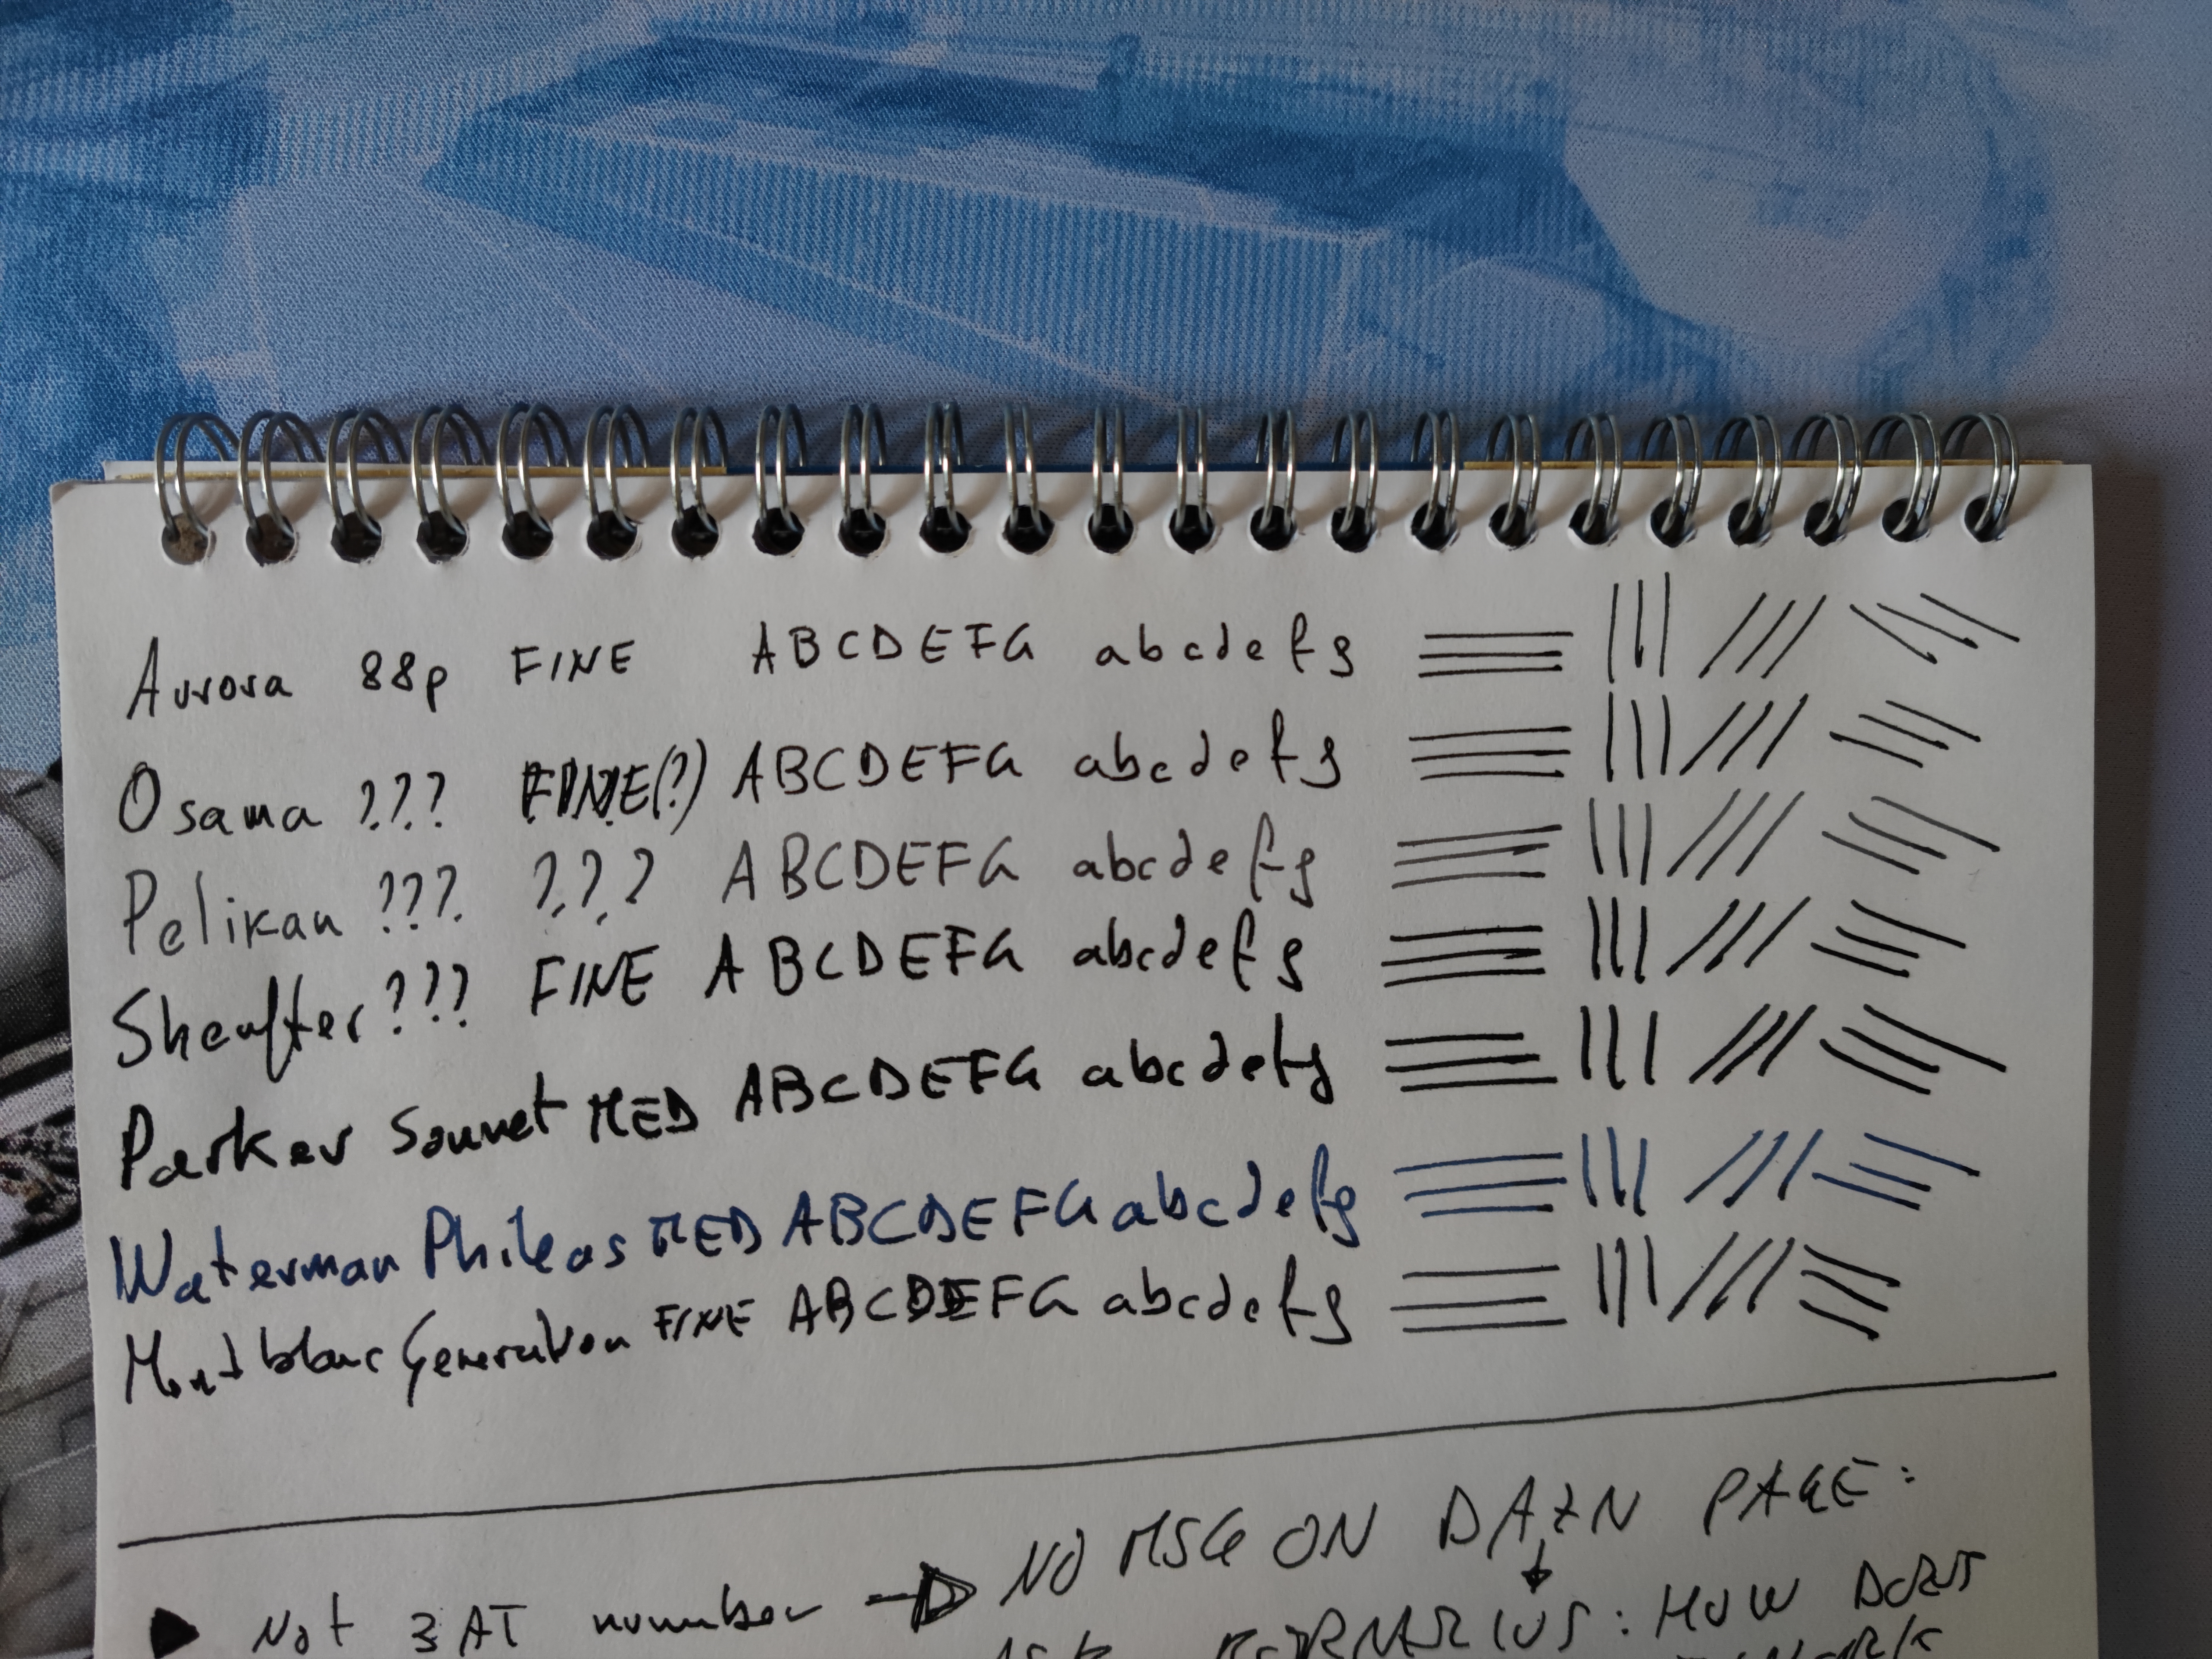 Aurora 88p FINE ABCDEFG abcdefg
Osama ??? FINE(?) ABCDEFG abcdefg
Pelikan ??? ??? ABCDEFG abcdefg
Sheaffer ??? FINE ABCDEFG abcdefg
Parker Sonnet MED ABCDEFG abcdefg
Waterman Phileas MED ABCDEFG abcdefg
Montblanc Generation FINE ABCDEFG abcdefg
NO MSG ON DAZN PAGE:
Not 3AT number
: HOW DOES